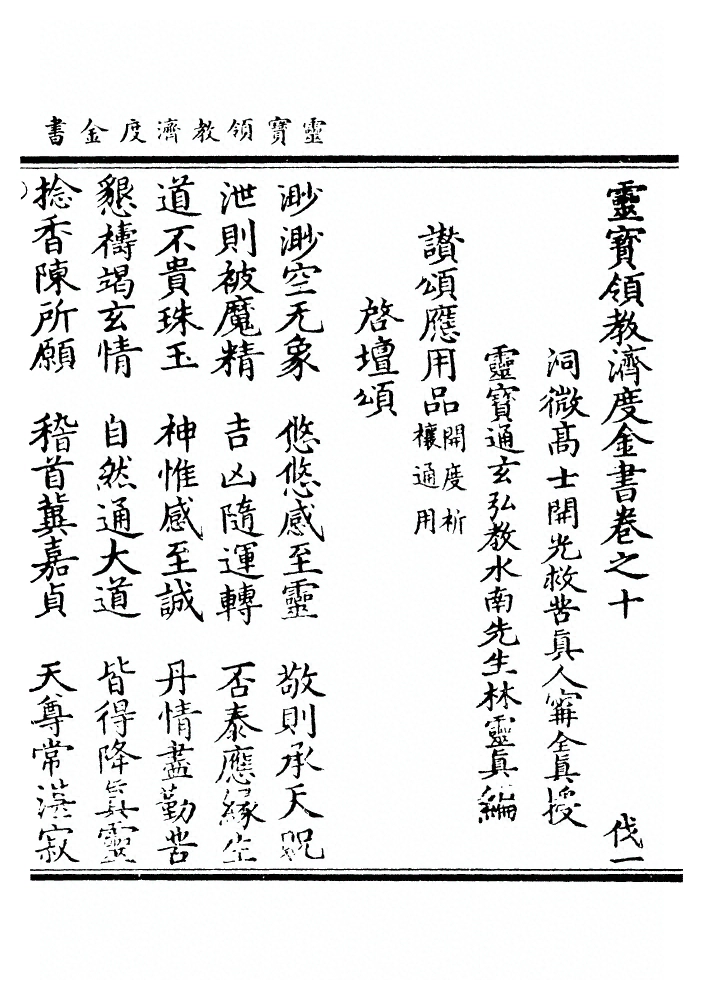 靈寶領教濟度金書
靈寶領教濟度金書卷之十 伐一
洞微高士開光救苦眞人甯全眞授
靈寶通玄弘教水南先生林靈眞編
讃頌應用品開度析禳通用
啓壇頌
渺渺空无象 悠悠感至靈 敬則承天貺
泄則被魔精 吉凶隨運轉 否泰應緣生
道不貴珠玉 神惟感至誠 丹情盡勤苦
懇禱竭玄情 自然通大道 皆得降眞靈
捻香陳所願 稽首冀嘉貞 天尊常湛寂